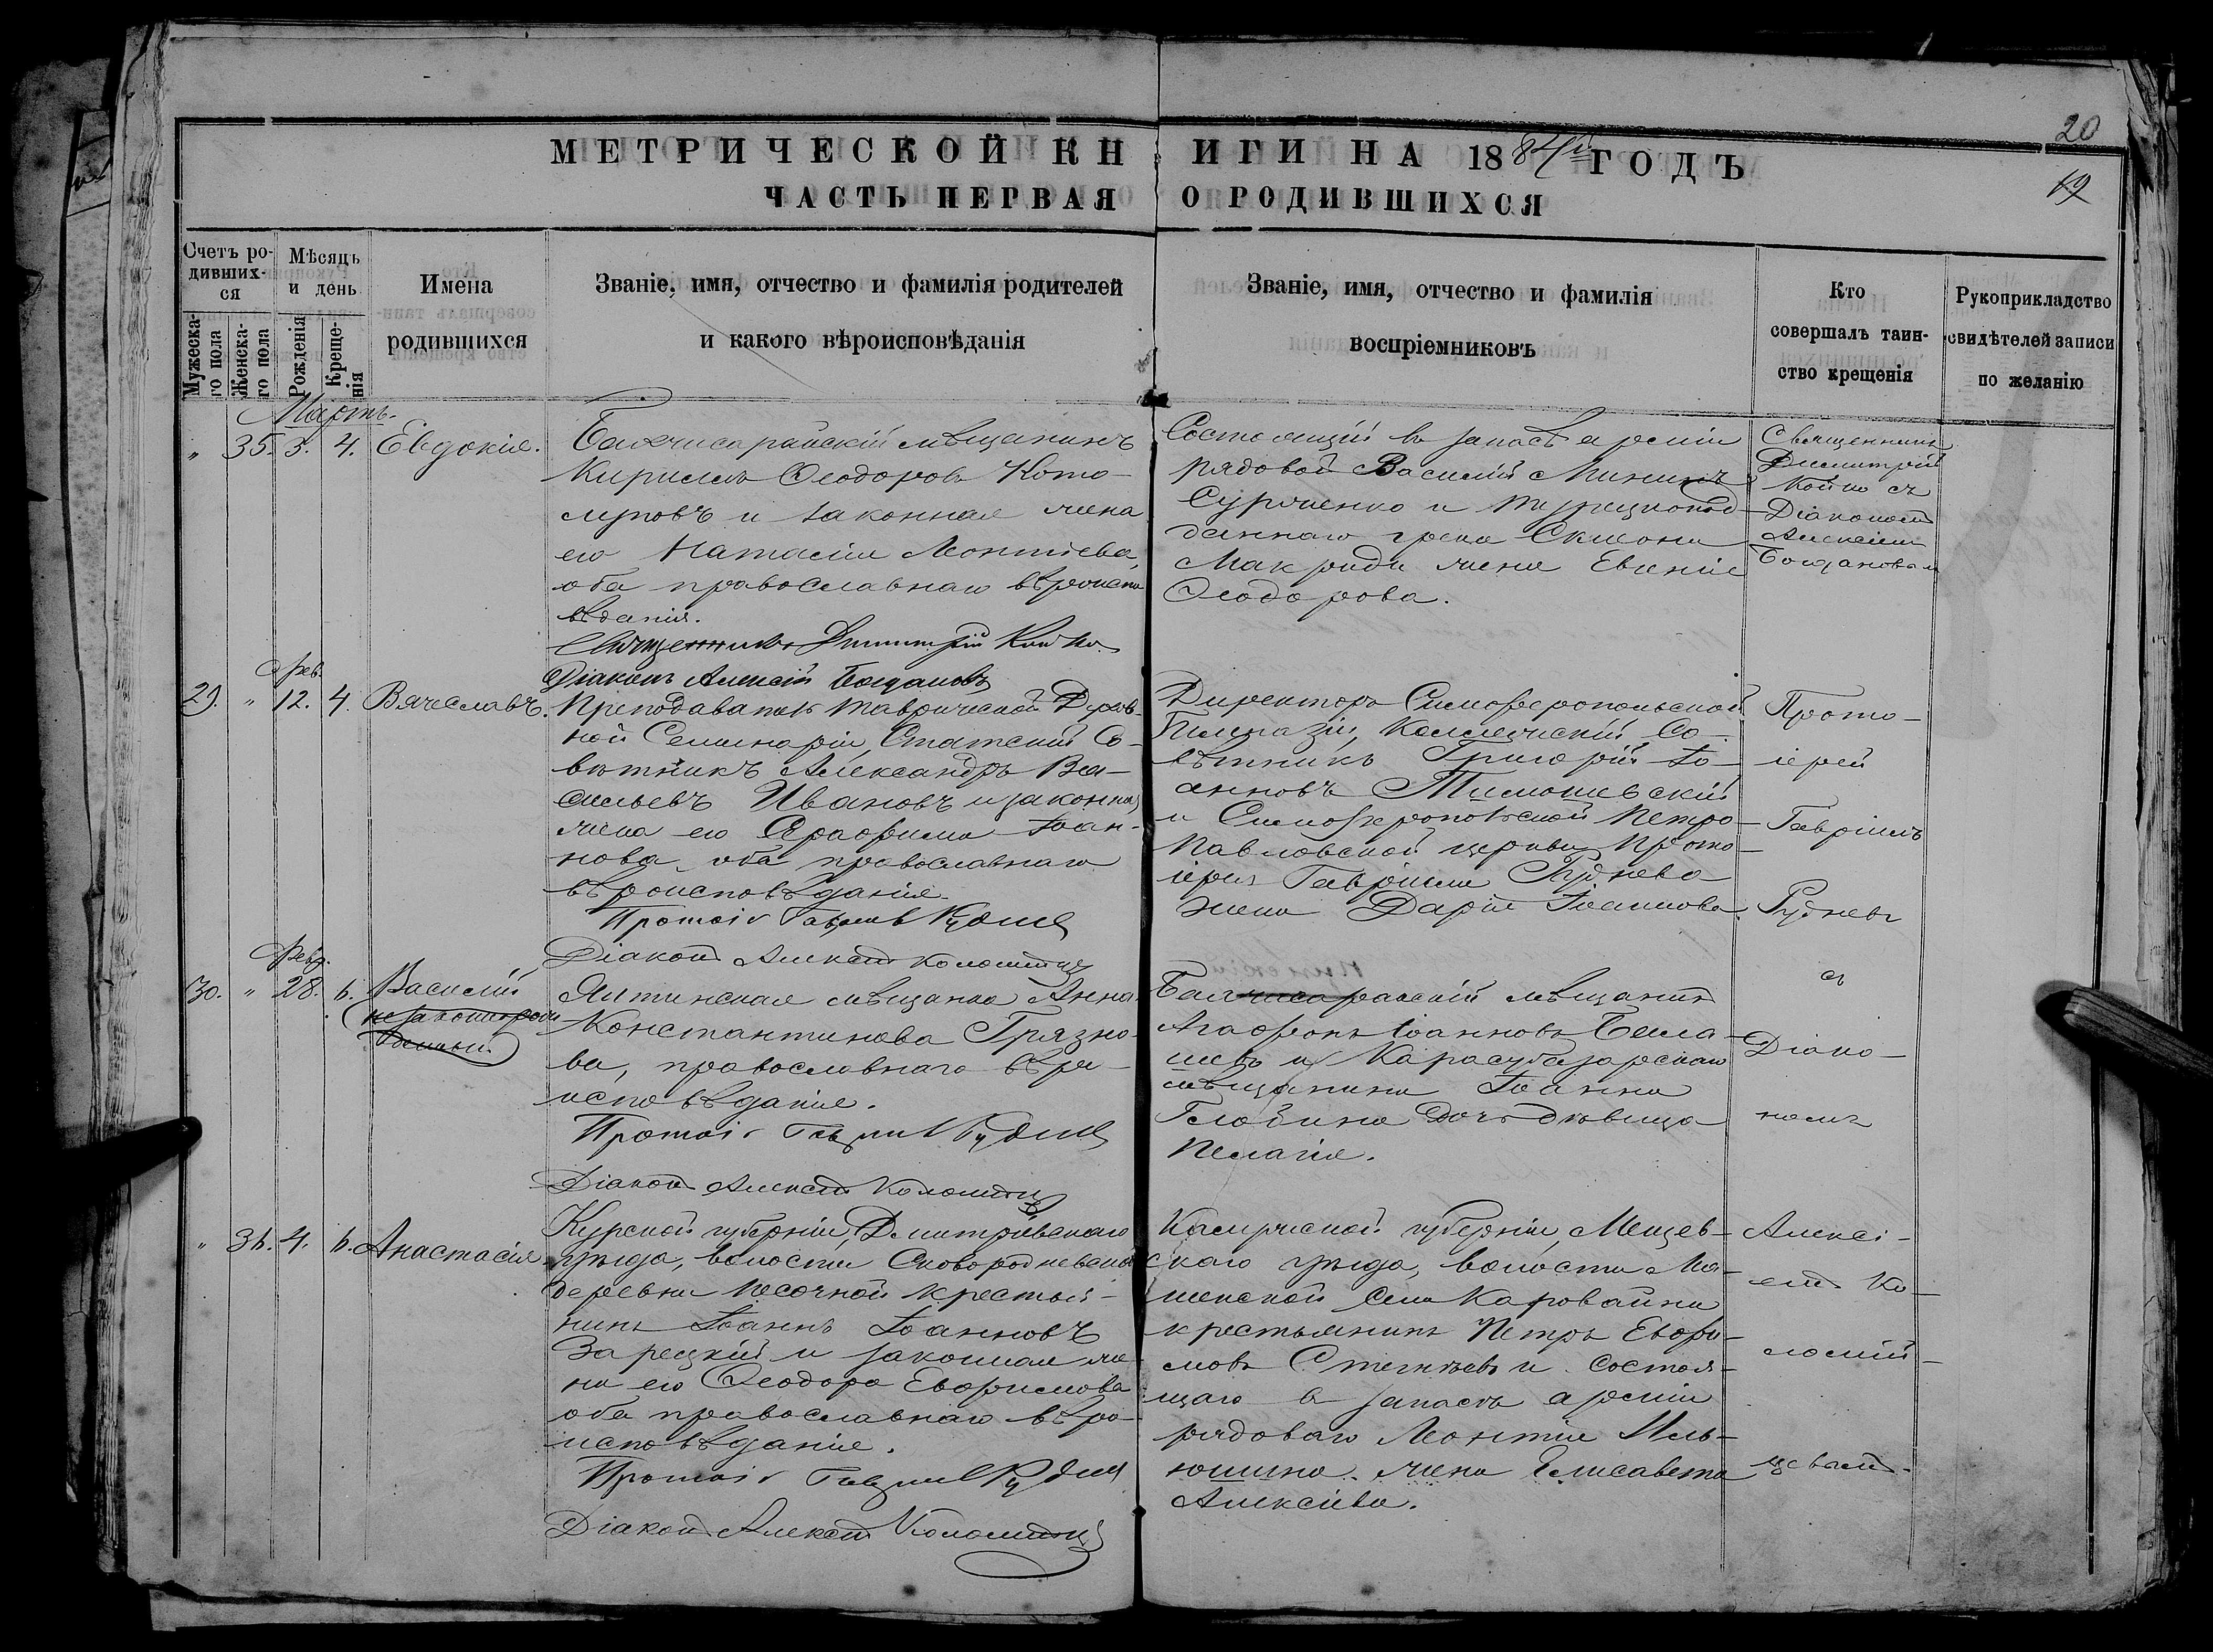 20
19
МЕТРИЧЕСКОЙ КНИГИ НА 1884й ГОДЪ
ЧАСТЬ ПЕРВАЯ О РОДИВШИХСЯ
Счетъ ро-
дивших-
ся
Мужеска-
го пола
Женска-
го пола
Мѣсяцъ
и день
Рожденія
Креще-
нія
Имена
родившихся
Званіе, имя, отчество и фамилія родителей
и какого вѣроисповѣданія
Званіе, имя, отчество и фамилія
воспріемниковъ
Кто
совершалъ таин-
ство крещенія
Рукоприкладство
свидѣтелей записи
по желанію
Мартъ.
" 35. 3. 4. Евдокія.
Бахчисарайскій мѣщанинъ
Кириллъ Ѳеодоровъ Кото-
луповъ и законная жена
его Наталія Леонтіева,
оба православнаго вѣроиспо
вѣданія.
Священникъ Димитрій Койко
Діаконъ Алексій Богдановъ
Состоящій въ запасѣ арміи
рядовой Василій Мининъ
Сурженко и турецкопод-
даннаго грека Симеона
Макриди жена Евгенія
Ѳеодорова.
Священникъ
Димитрій
Койко съ
Діакономъ
Алексіемъ
Богдановымъ
Фев.
29. " 12. 4. Вячеславъ.
Преподаватель Таврической Духов-
ной Семинаріи, Статскій Со-
вѣтникъ Александръ Ва-
сильевъ Ивановъ и законная
жена его Серафима Іоан-
нова, оба православнаго
вѣроисповѣданія.
Протоіе Гавріилъ Рудневъ
Діаконъ Алексій Коломійцевъ
Директоръ Симферопольской
Гимназіи, Коллежскій Со-
вѣтникъ Григорій Іо-
анновъ Тимошевскій
и Симферопольской Петро-
Павловской церкви Прото-
іерея Гавріила Руднева
жена Дарія Іоаннова.
Прото-
іерей
Гавріилъ
Рудневъ
съ
Діако-
номъ
Алексі-
емъ Ко-
ломій-
цевымъ.
Февр.
30. " 28. 6. Василій
(незаконнорож-
денный)
Ялтинская мѣщанка Анна
Константинова Грязно-
ва, православнаго вѣро-
исповѣданія.
Протоіе Гавріилъ Рудневъ
Діаконъ Алексій Коломійцевъ
Бахчисарайскій мѣщанинъ
Агафонъ Іоанновъ
и Карасубазарскаго
мѣщанина Іоанна
дочь дѣвица
Пелагія.
" 36. 4. 6. Анастасія.
Курской губерніи, Дмитріевскаго
уѣзда, волости Сковородневской
деревни Песочной крестья-
нинъ Іоаннъ Іоанновъ
Зарецкій и законная же-
на его Ѳеодора Евфимова
оба православнаго вѣро-
исповѣданія.
Протоіе Гавріилъ Рудневъ
Діаконъ Алексій Коломійцевъ
Калужской губерніи, Мещев-
скаго уѣзда, волости Мо-
шенской села Каровайни
крестьянинъ Петръ Евфи-
мовъ и состоя-
щаго въ запасѣ арміи
рядоваго Леонтія Иль-
юшина жена Елисавета
Алексіева.